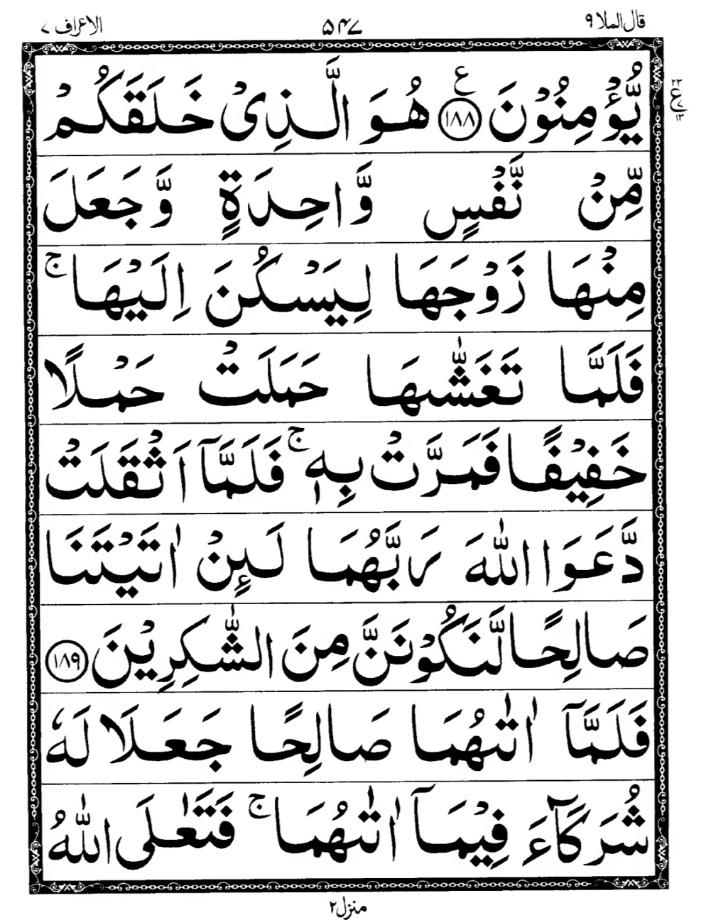 قال الملا ۹ ۵۴۷ الاعراف ۷
يُّؤْمِنُوْنَ ﴿۱۸۸﴾ ع هُوَ الَّذِىْ خَلَقَكُمْ
۲۳
ع
۱۳
مِّنْ نَّفْسٍ وَّاحِدَةٍ وَّجَعَلَ
مِنْهَا زَوْجَهَا لِيَسْكُنَ اِلَيْهَا ۚ
فَلَمَّا تَغَشّٰىهَا حَمَلَتْ حَمْلًا
خَفِيْفًا فَمَرَّتْ بِهٖ ۚ فَلَمَّاۤ اَثْقَلَتْ
دَّعَوَا اللّٰهَ رَبَّهُمَا لَئِنْ اٰتَيْتَنَا
صَالِحًا لَّنَكُوْنَنَّ مِنَ الشّٰكِرِيْنَ ﴿۱۸۹﴾
فَلَمَّاۤ اٰتٰٮهُمَا صَالِحًا جَعَلَا لَهٗ
شُرَكَآءَ فِيْمَاۤ اٰتٰٮهُمَا ۚ فَتَعٰلَى اللّٰهُ
منزل ۲